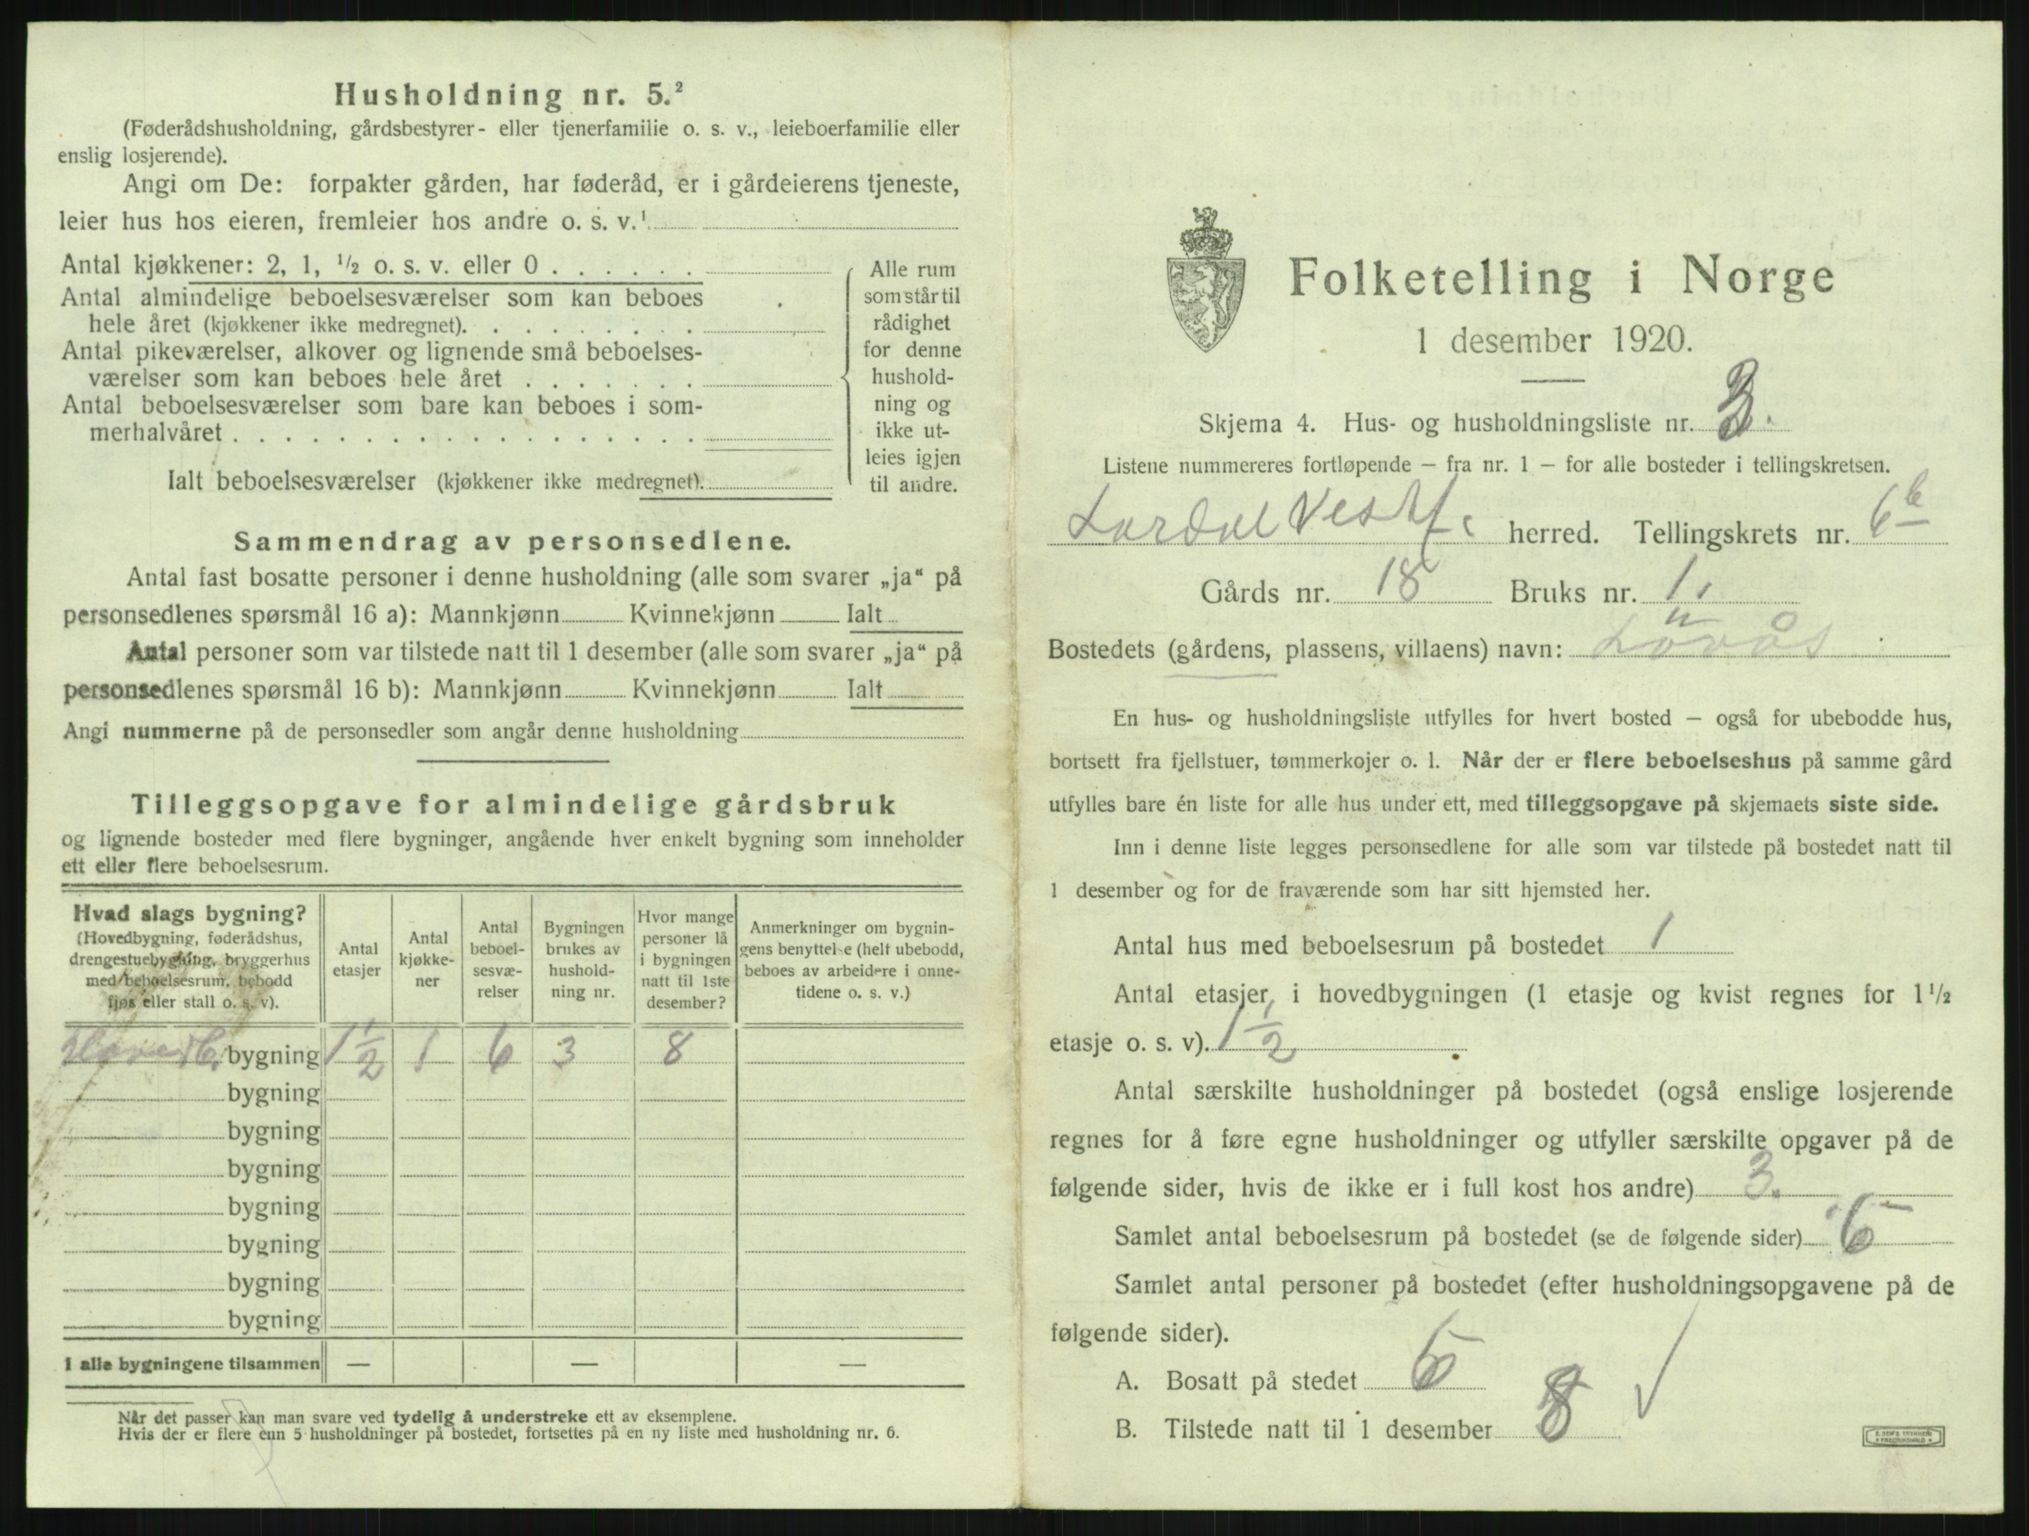 Husholdning nr. 5.²
(Føderådshusholdning, gårdsbestyrer- eller tjenerfamilie o. s. v., leieboerfamilie eller
enslig losjerende).
Angi om De: forpakter gården, har føderåd, er i gårdeierens tjeneste,
leier hus hos eieren, fremleier hos andre o. s. v.¹
Antal kjøkkener: 2, 1, ½ o. s. v. eller 0 . . . . . .
Antal almindelige beboelsesværelser som kan beboes
hele året (kjøkkener ikke medregnet). . . . . . . . .
Antal pikeværelser, alkover og lignende små beboelses-
værelser som kan beboes hele året . . . . . . .
Antal beboelsesværelser som bare kan beboes i som-
merhalvåret . . . . . . . . . . . . . . . . . .
Ialt beboelsesværelser (kjøkkener ikke medregnet).
Alle rum
som står til
rådighet
for denne
hushold-
ning og
ikke ut-
leies igjen
til andre.
Sammendrag av personsedlene.
Antal fast bosatte personer i denne husholdning (alle som svarer „ja“ på
personsedlenes spørsmål 16 a): Mannkjønn Kvinnekjønn Ialt
Antal personer som var tilstede natt til 1 desember (alle som svarer „ja“ på
personsedlenes spørsmål 16 b): Mannkjønn Kvinnekjønn Ialt
Angi nummerne på de personsedler som angår denne husholdning
Tilleggsopgave for almindelige gårdsbruk
og lignende bosteder med flere bygninger, angående hver enkelt bygning som inneholder
ett eller flere beboelsesrum.
Hvad slags bygning?
(Hovedbygning, føderådshus,
drengestuebygning, bryggerhus
med beboelsesrum, bebodd
fjøs eller stall o. s. v).
Antal
etasjer
Antal
kjøkke-
ner
Antal
beboel-
sesvæ-
relser
Bygningen
brukes av
hushold-
ning nr.
Hvor mange
personer lå
i bygningen
natt til 1ste
desember?
Anmerkninger om bygnin-
gens benyttelse (helt ubebodd,
beboes av arbeidere i onne-
tidene o. s. v.)
bygning 1½ 1 6 3 8
bygning
bygning
bygning
bygning
bygning
bygning
bygning
I alle bygningene tilsammen — — —
Når det passer kan man svare ved tydelig å understreke ett av eksemplene.
Hvis der er flere enn 5 husholdninger på bostedet, fortsettes på en ny liste med husholdning nr. 6.
Folketelling i Norge
1 desember 1920.
Skjema 4. Hus- og husholdningsliste nr. 3.
Listene nummereres fortløpende – fra nr. 1 – for alle bosteder i tellingskretsen.
Lardal Vestf. herred. Tellingskrets nr. 6b
Gårds nr. 18 Bruks nr. 1.
Bostedets (gårdens, plassens, villaens) navn: Lövås
En hus- og husholdningsliste utfylles for hvert bosted – også for ubebodde hus,
bortsett fra fjellstuer, tømmerkojer o. l. Når der er flere beboelseshus på samme gård
utfylles bare én liste for alle hus under ett, med tilleggsopgave på skjemaets siste side.
Inn i denne liste legges personsedlene for alle som var tilstede på bostedet natt til
1 desember og for de fraværende som har sitt hjemsted her.
Antal hus med beboelsesrum på bostedet 1
Antal etasjer i hovedbygningen (1 etasje og kvist regnes for 1½
etasje o. s. v). 1½
Antal særskilte husholdninger på bostedet (også enslige losjerende
regnes for å føre egne husholdninger og utfyller særskilte opgaver på de
følgende sider, hvis de ikke er i full kost hos andre) 3.
Samlet antal beboelsesrum på bostedet (se de følgende sider) 6
Samlet antal personer på bostedet (efter husholdningsopgavene på de
følgende sider).
A. Bosatt på stedet
B. Tilstede natt til 1 desember 8